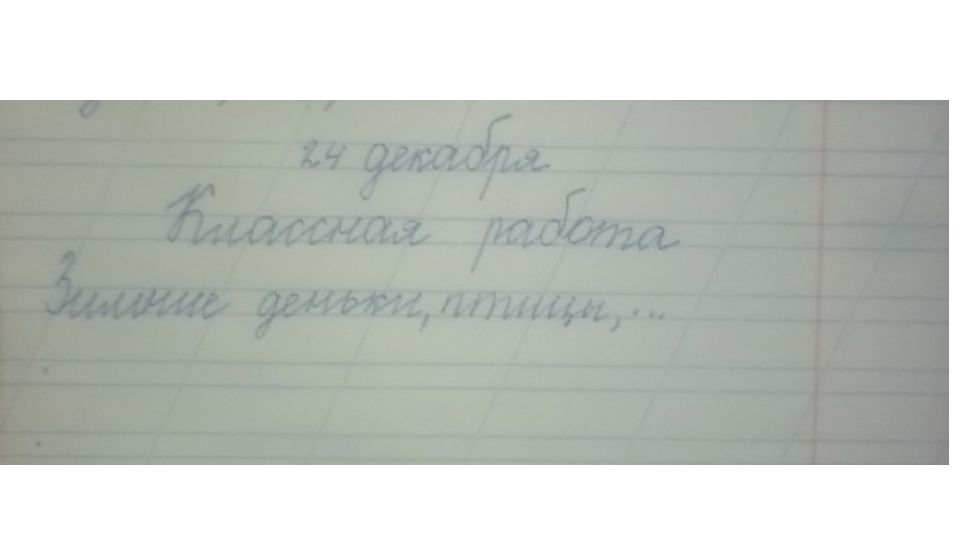 24 декабря
Классная работа
Зимние деньки, птицы, ...